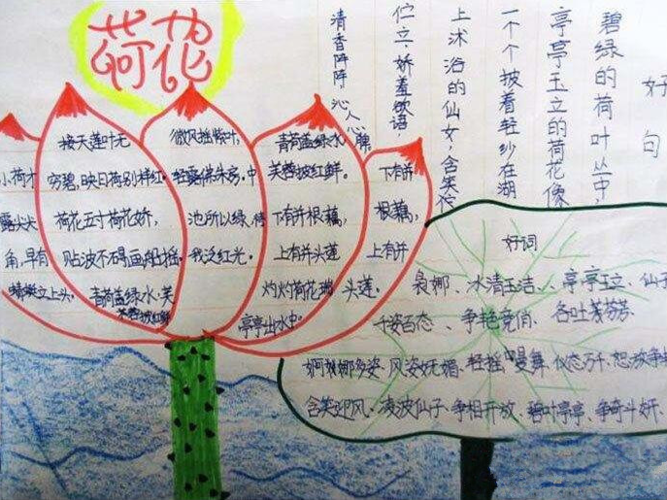 荷花
小荷才
露尖尖
角,早有
蜻蜓立上头。
接天莲叶无
穷碧,映日荷别样红。
荷花五寸荷花娇,
贴波不碍画船摇
青荷盖绿水,芙
蓉披红鲜
微风摇紫叶,
轻露拂朱房,中
池所以绿,待
我泛红光。
青荷盖绿水
芙蓉披红鲜。
下有并根藕,
上有并头莲
灼灼荷花瑞
亭亭出水中。
下有并
根藕,
上有并
头莲。
好句
碧绿的荷叶丛中,
亭亭玉立的荷花像
一个个披着轻纱在湖
上沐浴的仙女,含笑伫
伫立,娇羞欲语
清香阵阵 沁人心脾
好词
袅娜、冰清玉洁、亭亭玉立、仙子
千姿百态、争艳竞俏、各吐芬芳
婀娜多姿、风姿妩媚、轻摇曼舞、仪态万千、怒放争
含笑迎风、凌波仙子、争相开放、碧叶亭亭、争奇斗妍